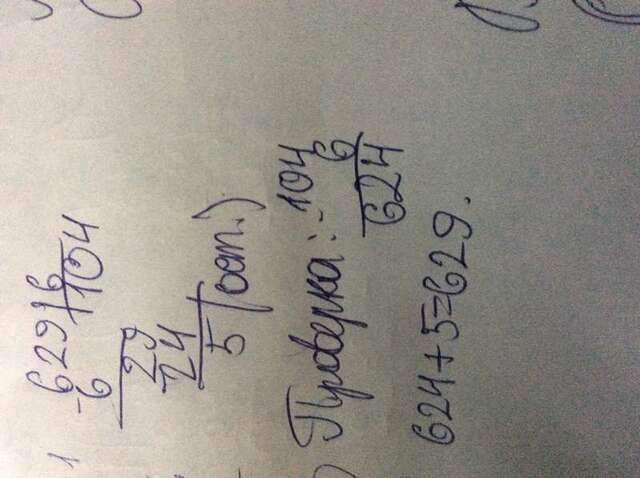 1
629 6
-6 104
29
24
5 (ост.)
Проверка: 104
6
624
624+5=629.